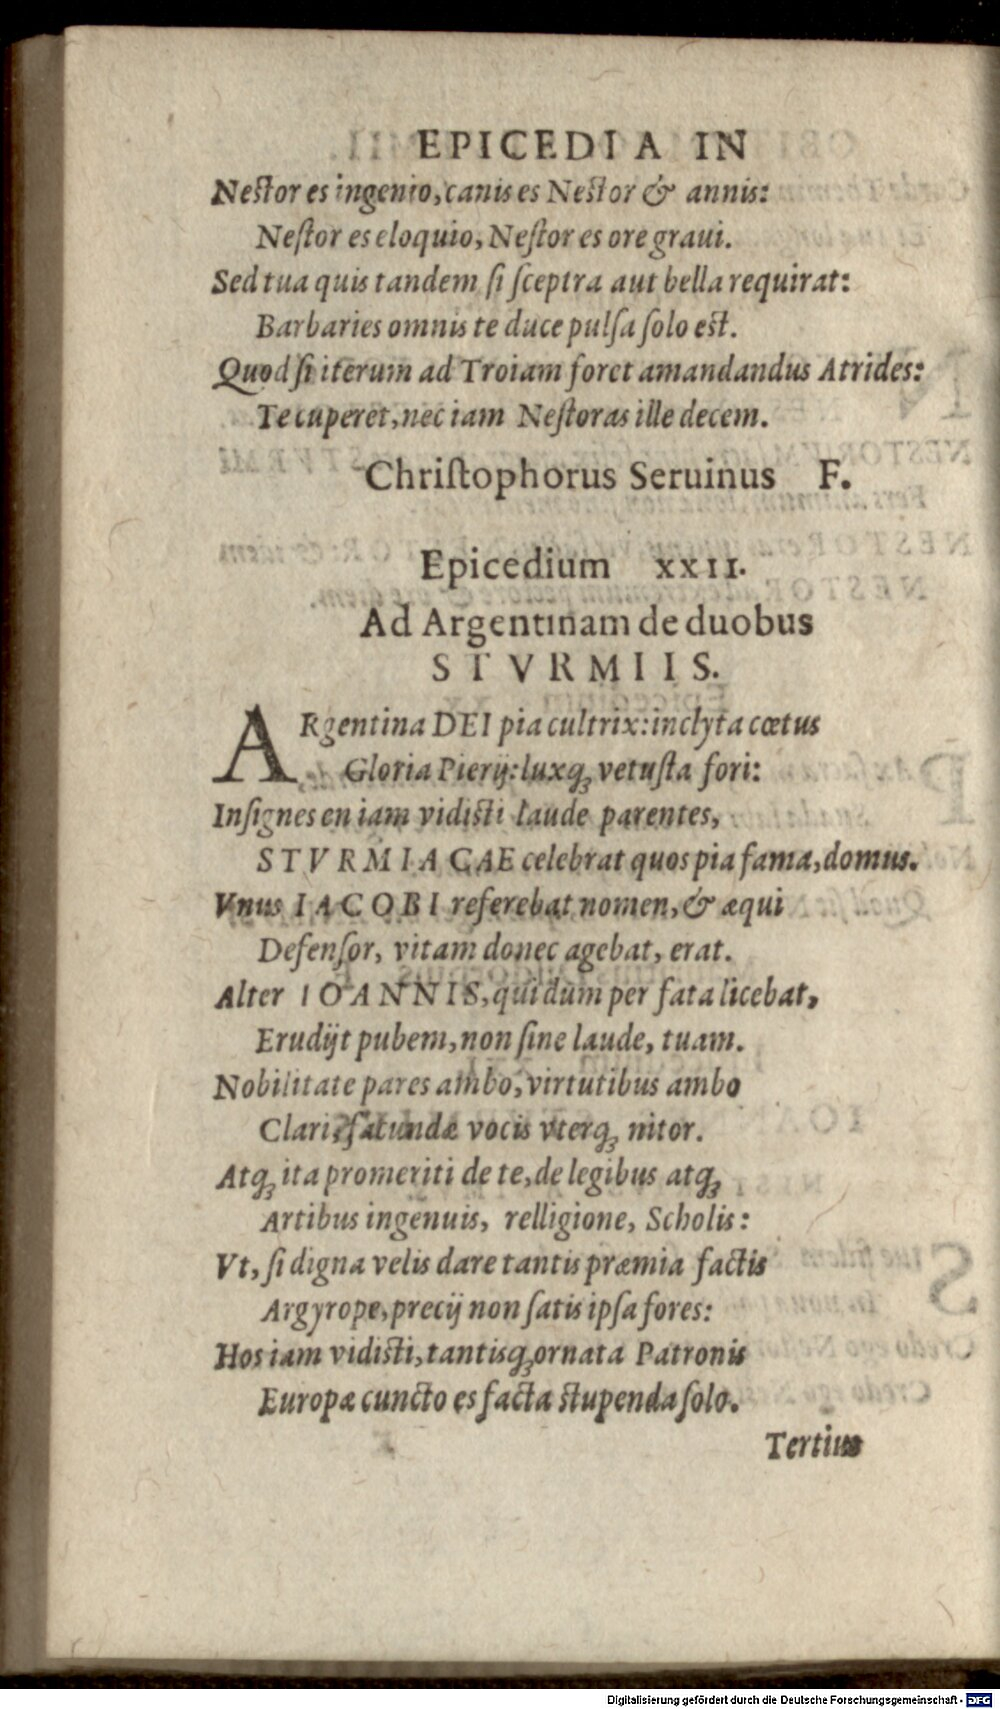 EPICEDIA IN
Neſtor es ingenio, canis es Neſtor & annis:
Neſtor es eloquio, Neſtor es ore graui.
Sed tua quis tandem ſi ſceptra aut bella requirat:
Barbaries omnis te duce pulſa ſolo eſt.
Quod ſi iterum ad Troiam foret amandandus Atrides:
Te cuperet, nec iam Neſtoras ille decem.
Chriſtophorus Seruinus F.
Epicedium XXII.
Ad Argentinam de duobus
STVRMIIS.
ARgentina DEI pia cultrix: inclyta cœtus
Gloria Pierij: luxq́ꝫ vetuſta fori:
Inſignes en iam vidiſti laude parentes,
STVRMIACAE celebrat quos pia fama, domus.
Vnus IACOBI referebat nomen, & æqui
Defenſor, vitam donec agebat, erat.
Alter IOANNIS, qui dum per fata licebat,
Erudijt pubem, non ſine laude, tuam.
Nobilitate pares ambo, virtutibus ambo
Clari, facundæ vocis vterqꝫ nitor.
Atqꝫ ita promeriti de te, de legibus atqꝫ
Artibus ingenuis, relligione, Scholis:
Vt, ſi digna velis dare tantis præmia factis
Argyrope, precij non ſatis ipſa fores:
Hos iam vidiſti, tantisqꝫ ornata Patronis
Europæ cuncto es facta ſtupenda ſolo.
Tertius
Digitalisierung gefördert durch die Deutsche Forschungsgemeinschaft - DFG